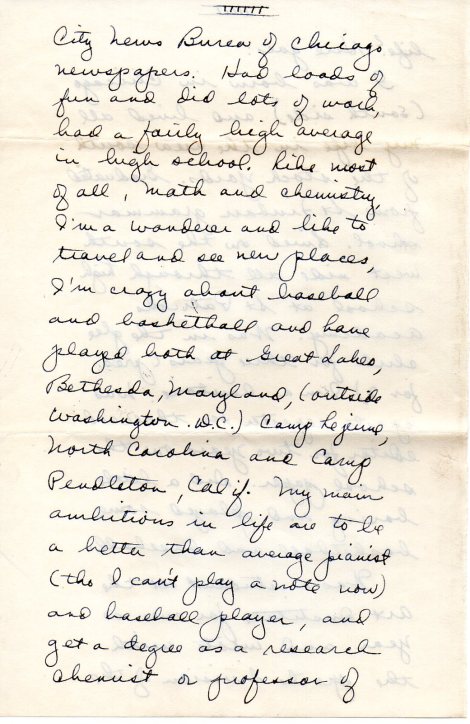 City News Bureau of Chicago
newspapers. Had loads of
fun and did lots of work,
had a fairly high average
in high school. Like most
of all, math and chemistry,
I'm a wanderer and like to
travel and see new places,
I'm crazy about baseball
and basketball and have
played both at Great Lakes,
Bethesda, Maryland, (outside
Washington. D.C.) Camp Lejeune,
North Carolina and Camp
Pendleton, Calif. My main
ambitions in life are to be
a better than average pianist
(tho I can't play a note now)
and baseball player, and
get a degree as a research
chemist or professor of